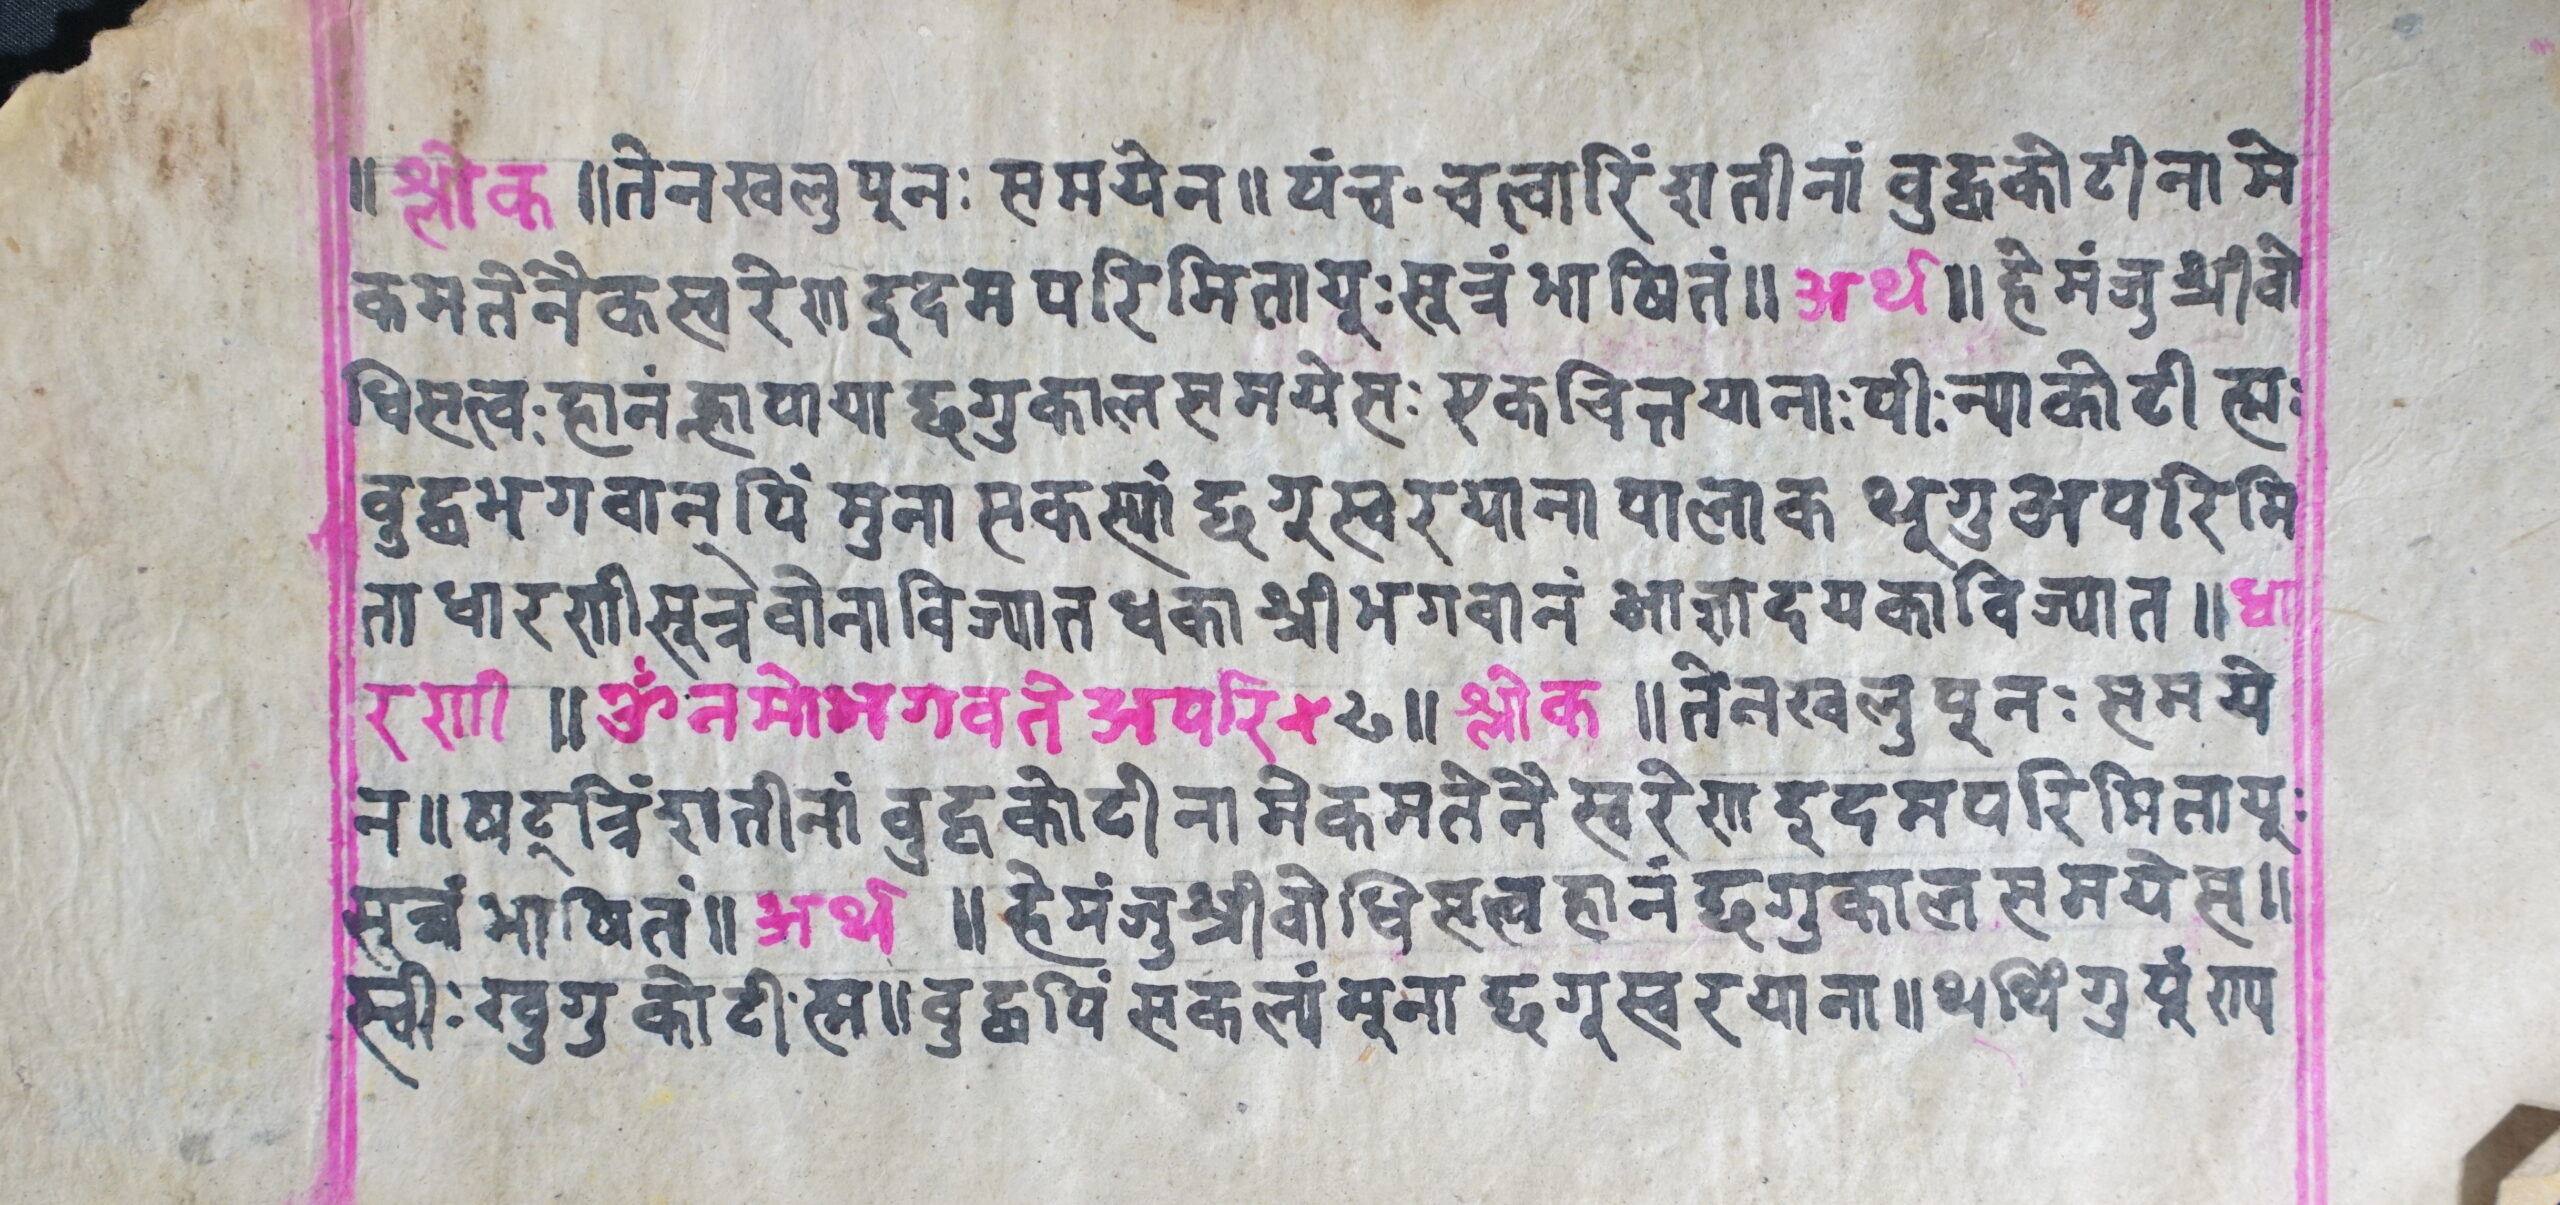 ॥ श्लोक ॥ तेन खलु पून: समयेन ॥ पंच॰चत्वारिंशतीनां वुद्धकोटीनामे
कमतेनैकस्वरेण इदमपरिमितायू: सूत्रं भाषितं ॥ अर्थ ॥ हे मंजुश्रीवो
धिसत्व: हानं ह्लापाया छगुकालसमयेस: एकचित्तयाना: पी:न्याकोटी ह्म:
वुद्धभगवान्पिं मुना सकस्यां छगूस्वरयाना पालाक थूगु अपरिमि
ता धारणी सूत्र वोना विज्यात धका श्रीभगवानं आज्ञा दयका विज्यात ॥ धा
रणी ॥ ॐ नमो भगवते अपरि ॥ श्लोक ॥ तेन खलु पून: समये
न ॥ षट्त्रिंशतीनां वुद्धकोटीनामेकमतेनै स्वरेण इदमपरिमितायू:
सूत्रं भाषितं ॥ अर्थ ॥ हे मंजुश्रीवोधिसत्व हानं छगुकालसमयेस ॥
स्वी: खुगु कोटी: ह्म ॥ वुद्धपिं सकल्यं मूना छगूस्वरयाना ॥ थथिंगु